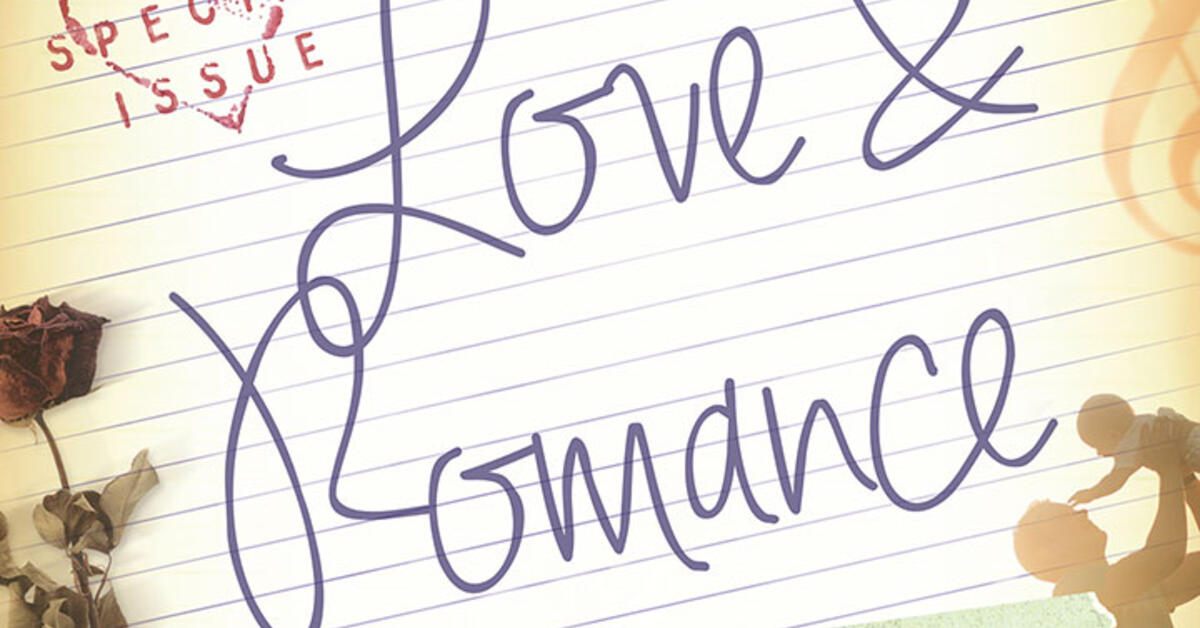 SPECIAL
ISSUE
Love &
Romance